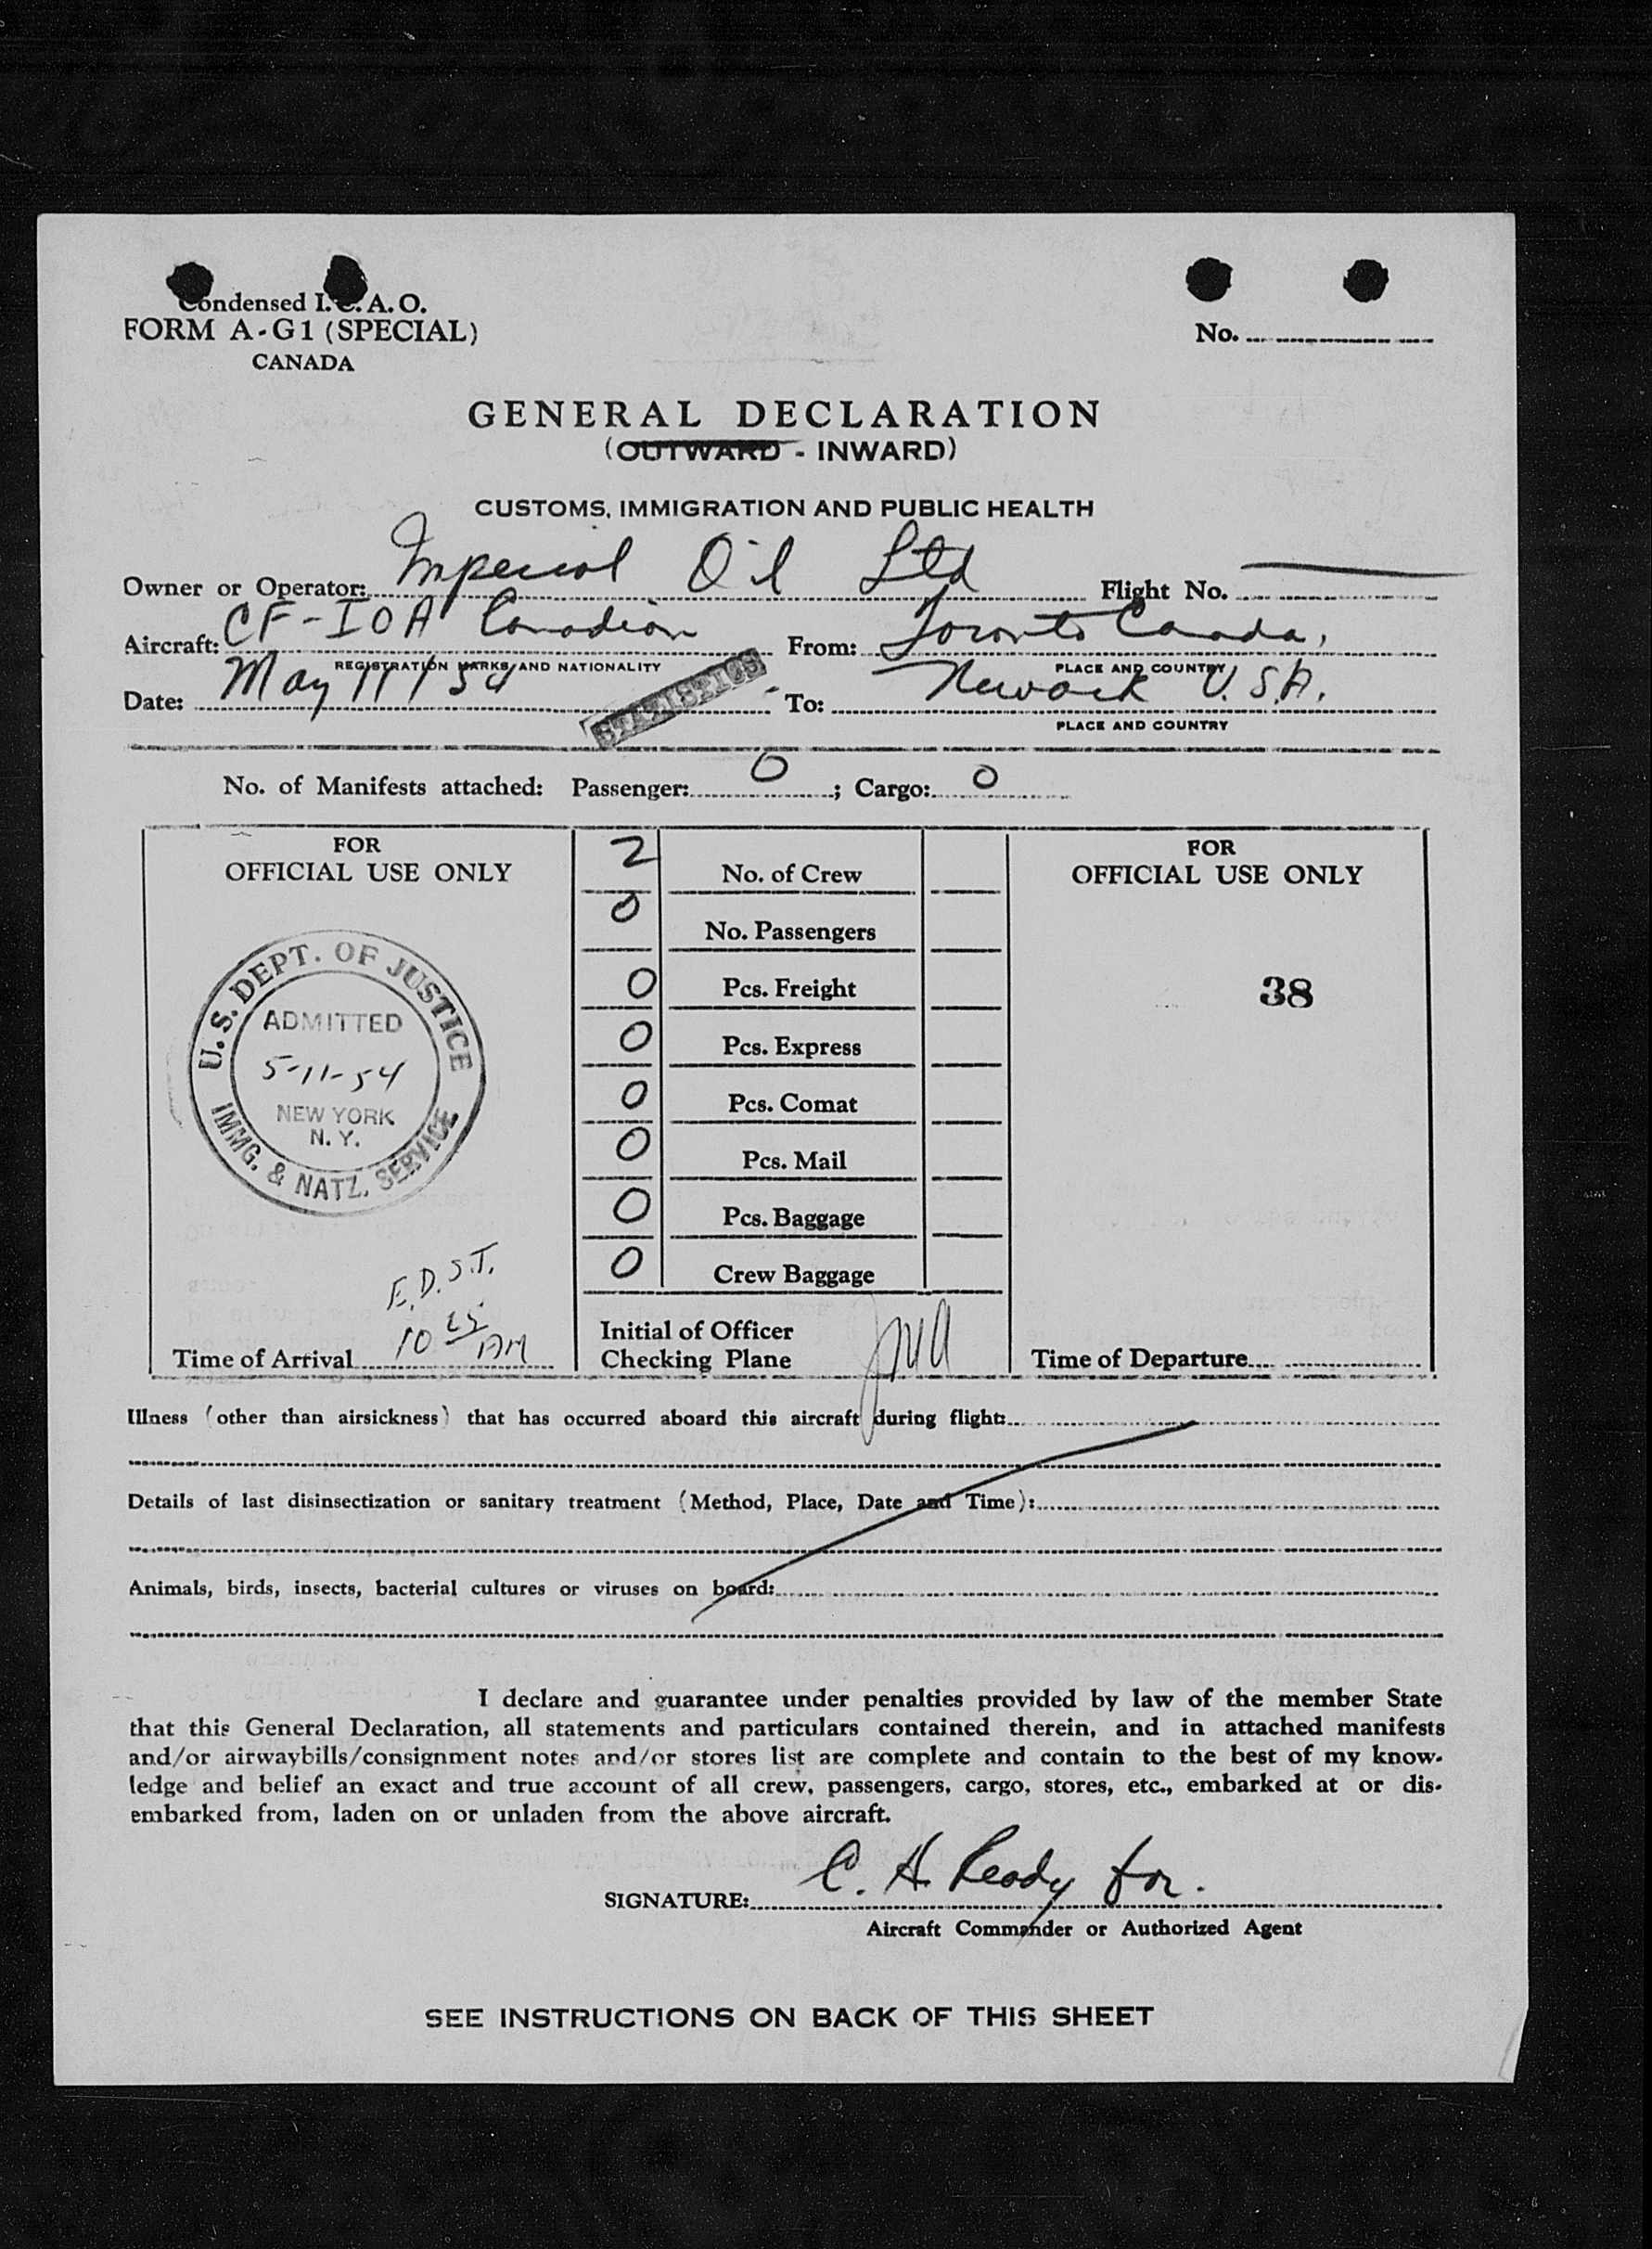 Condensed I.C.A.O.
FORM A-G1 (SPECIAL)
CANADA
No.
GENERAL DECLARATION
(OUTWARD - INWARD)
CUSTOMS, IMMIGRATION AND PUBLIC HEALTH
Owner or Operator: Imperial Oil Ltd Flight No. —
Aircraft: CF-IOA Canadian From: Toronto Canada,
REGISTRATION MARKS AND NATIONALITY PLACE AND COUNTRY
Date: May 11/54 To: Newark U.S.A.
STATISTICS
PLACE AND COUNTRY
No. of Manifests attached: Passenger: 0; Cargo: 0
FOR
OFFICIAL USE ONLY
U.S. DEPT. OF JUSTICE
ADMITTED
5-11-54
NEW YORK
N. Y.
IMMG. & NATZ. SERVICE
E.D.S.T.
Time of Arrival 10 AM
2 No. of Crew
0 No. Passengers
0 Pcs. Freight
0 Pcs. Express
0 Pcs. Comat
0 Pcs. Mail
0 Pcs. Baggage
0 Crew Baggage
Initial of Officer
Checking Plane
FOR
OFFICIAL USE ONLY
38
Time of Departure
Illness (other than airsickness) that has occurred aboard this aircraft during flight:
Details of last disinsectization or sanitary treatment (Method, Place, Date and Time):
Animals, birds, insects, bacterial cultures or viruses on board:
I declare and guarantee under penalties provided by law of the member State
that this General Declaration, all statements and particulars contained therein, and in attached manifests
and/or airwaybills/consignment notes and/or stores list are complete and contain to the best of my know-
ledge and belief an exact and true account of all crew, passengers, cargo, stores, etc., embarked at or dis-
embarked from, laden on or unladen from the above aircraft.
SIGNATURE: C. H. Ready for.
Aircraft Commander or Authorized Agent
SEE INSTRUCTIONS ON BACK OF THIS SHEET